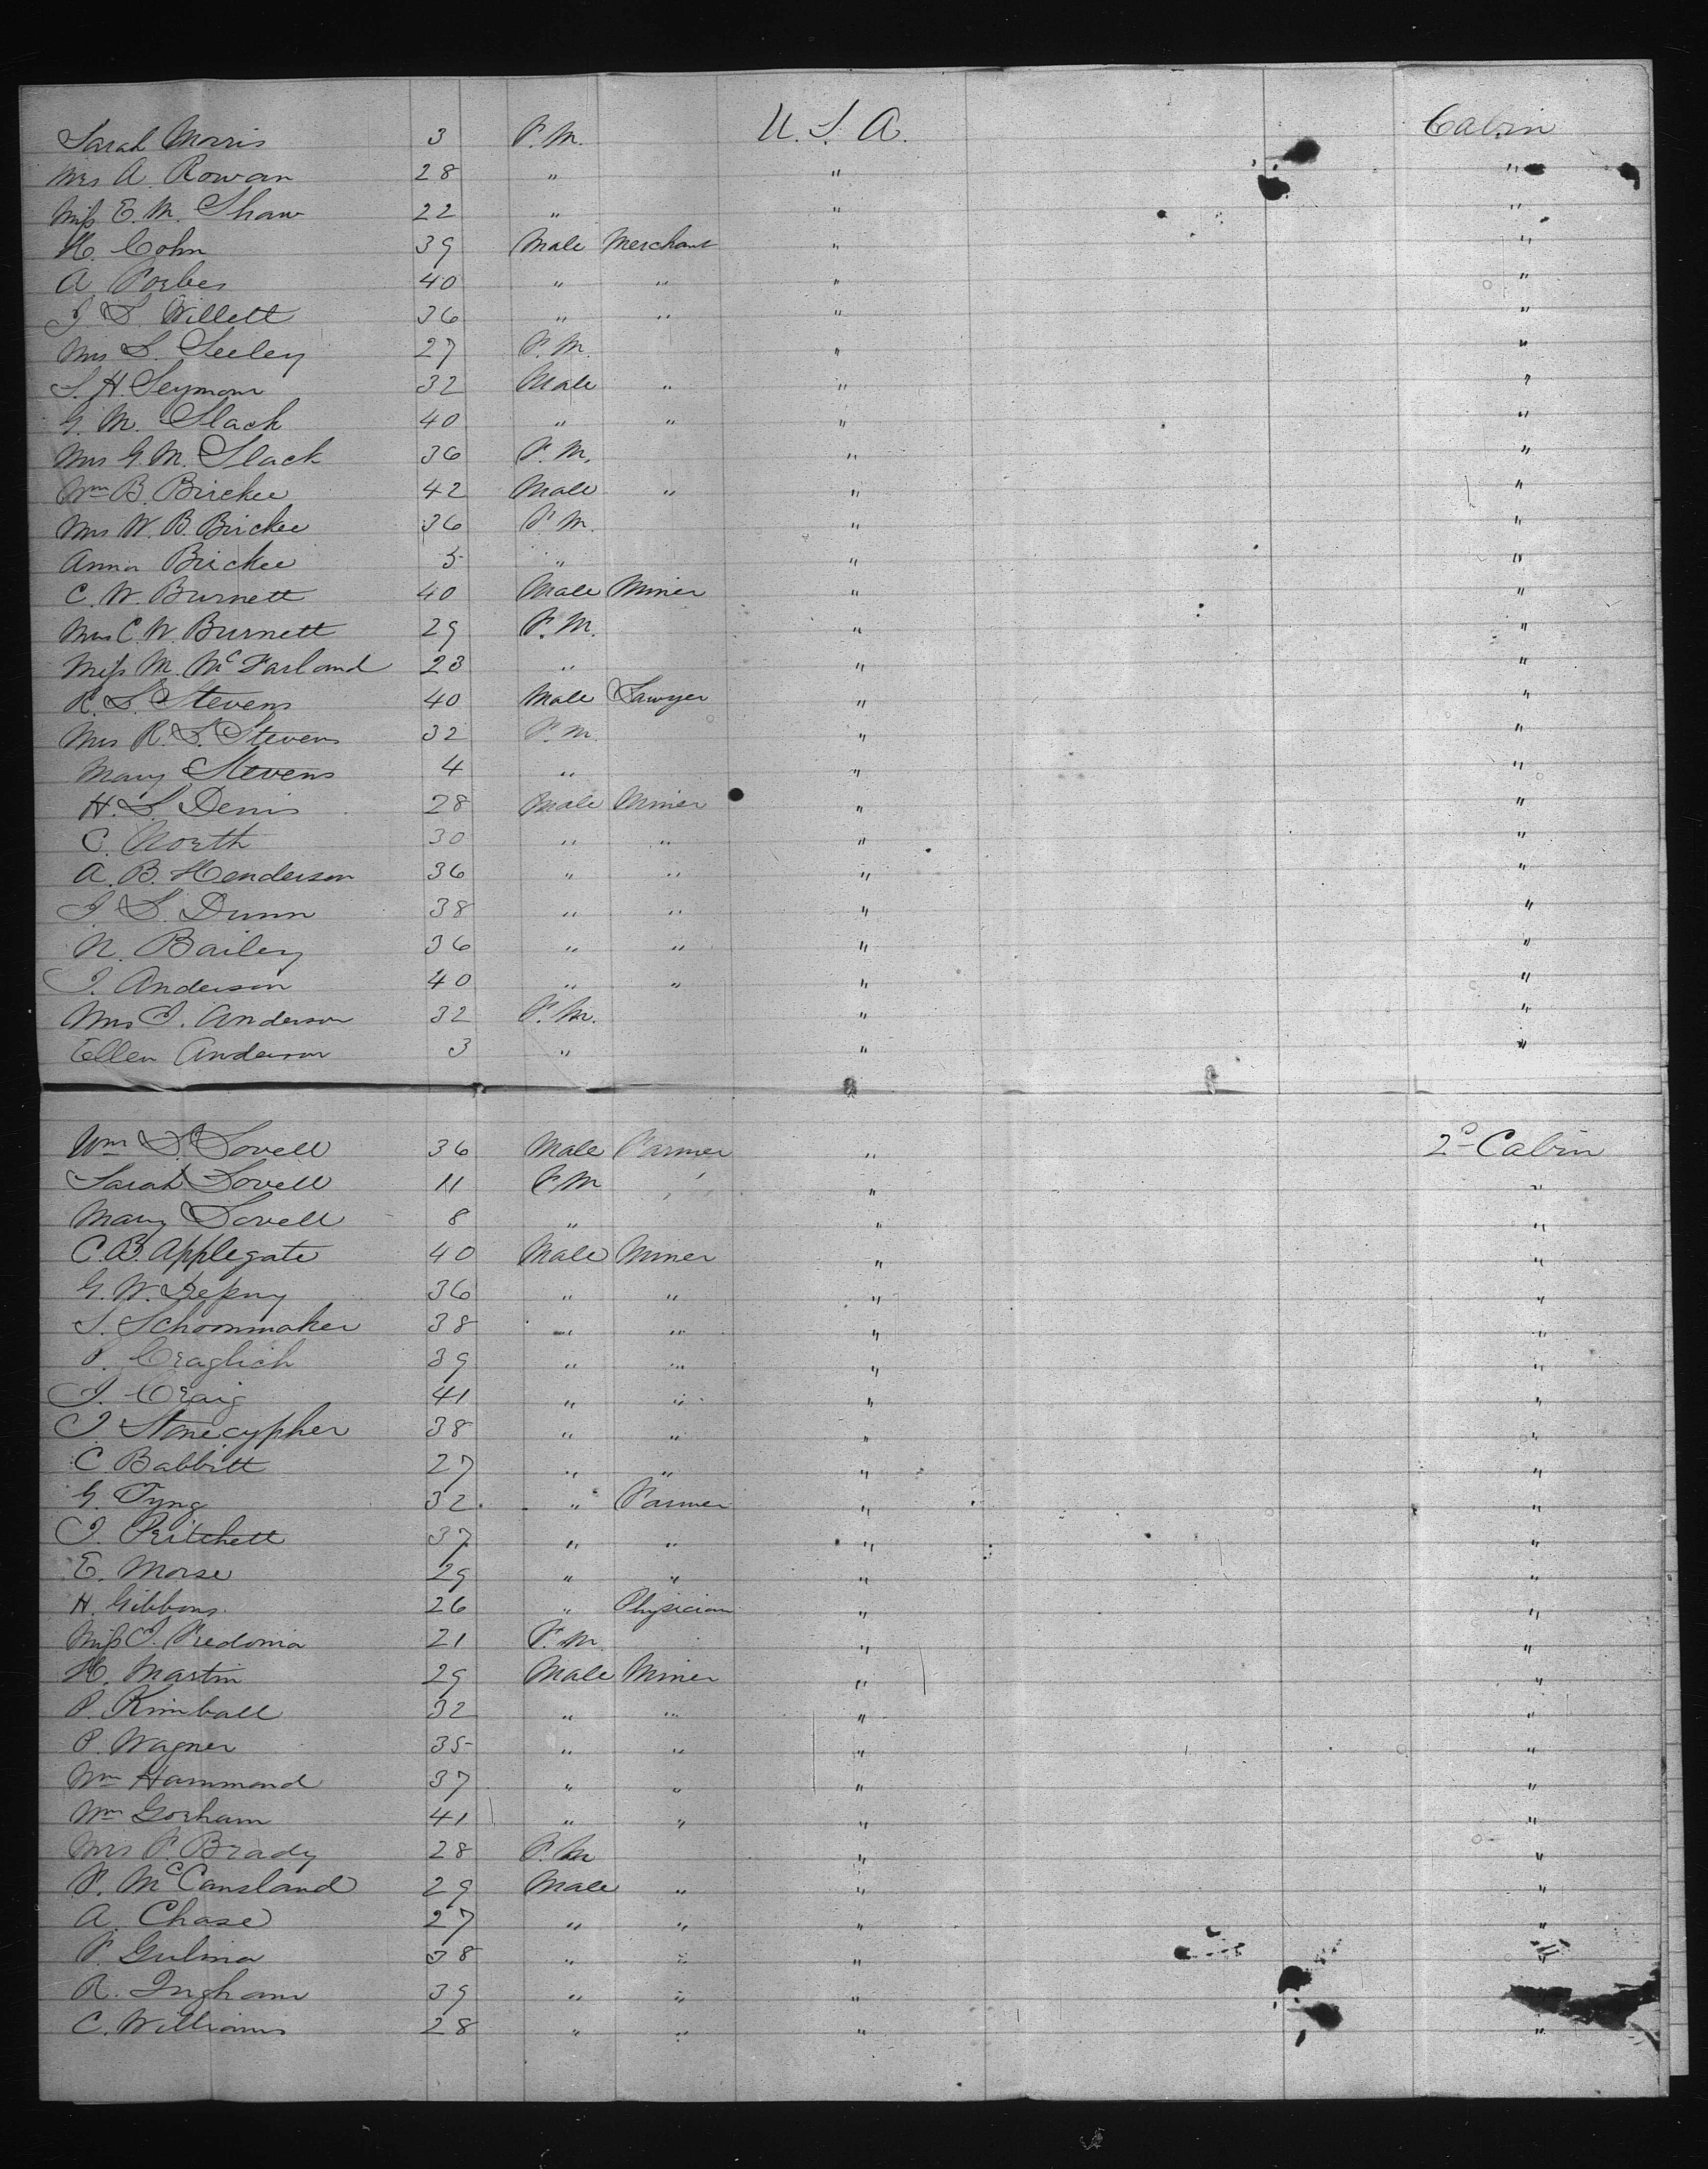 Sarah Morris 3 F.M. U.S.A. Cabin
Mrs A. Rowan 28 " " "
Miss E. M. Shaw 22 " " "
H. Cohn 39 Male Merchant " "
A Forbes 40 " " " "
J. S. Willett 36 " " " "
Mrs S. Seeley 27 F.M. " "
S. H. Seymour 32 Male " " "
G. M. Slack 40 " " " "
Mrs G. M. Slack 36 F.M. " "
Wm B. Birckee 42 Male " " "
Mrs W. B. Birckee 36 F.M. " "
Anna Birckee 5 " " "
C. W. Burnett 40 Male Miner " "
Mrs C. W. Burnett 29 F.M. " "
Miss M. McFarland 23 " " "
R. S. Stevens 40 Male Lawyer " "
Mrs R. S. Stevens 32 F.M. " "
Mary Stevens 4 " " "
H. S. Denis 28 Male Miner " "
C. North 30 " " " "
A. B. Henderson 36 " " " "
J. S. Dunn 38 " " " "
N. Bailey 36 " " " "
J. Anderson 40 " " " "
Mrs J. Anderson 32 F.M. " "
Ellen Anderson 3 " " "
Wm S. Lovell 36 Male Farmer " 2d Cabin
Sarah Lovell 11 F.M " " "
Mary Lovell 8 " " "
C. B. Applegate 40 Male Miner " "
G. W. 36 " " " "
S. Schoonmaker 38 " " " "
P. Craglich 39 " " " "
J. Craig 41 " " " "
J. Stonecypher 38 " " " "
C Babbitt 27 " " " "
G. Tyng 32 " Farmer " "
J. Pritchett 37 " " " "
E. Morse 29 " " " "
H. Gibbons 26 " Physician " "
Miss J. Fredonia 21 F.M. " "
H. Martin 29 Male Miner " "
P. Kimball 32 " " " "
P. Wagner 35 " " " "
Wm Hammond 37 " " " "
Wm Gorham 41 " " " "
Mrs F. Brady 28 F.M " "
F. McCausland 29 Male " " "
A. Chase 27 " " " "
F. Gulina 38 " " " "
R. Ingham 39 " " " "
C. Williams 28 " " " "